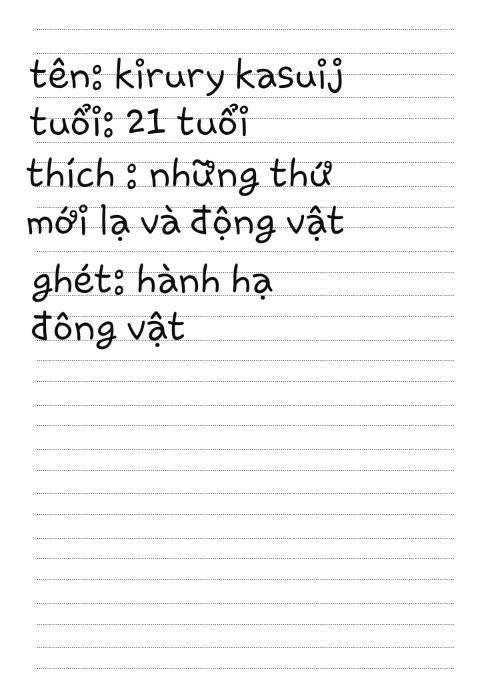 tên: kirury kasuij
tuổi: 21 tuổi
thích : những thứ
mới lạ và động vật
ghét: hành hạ
đông vật